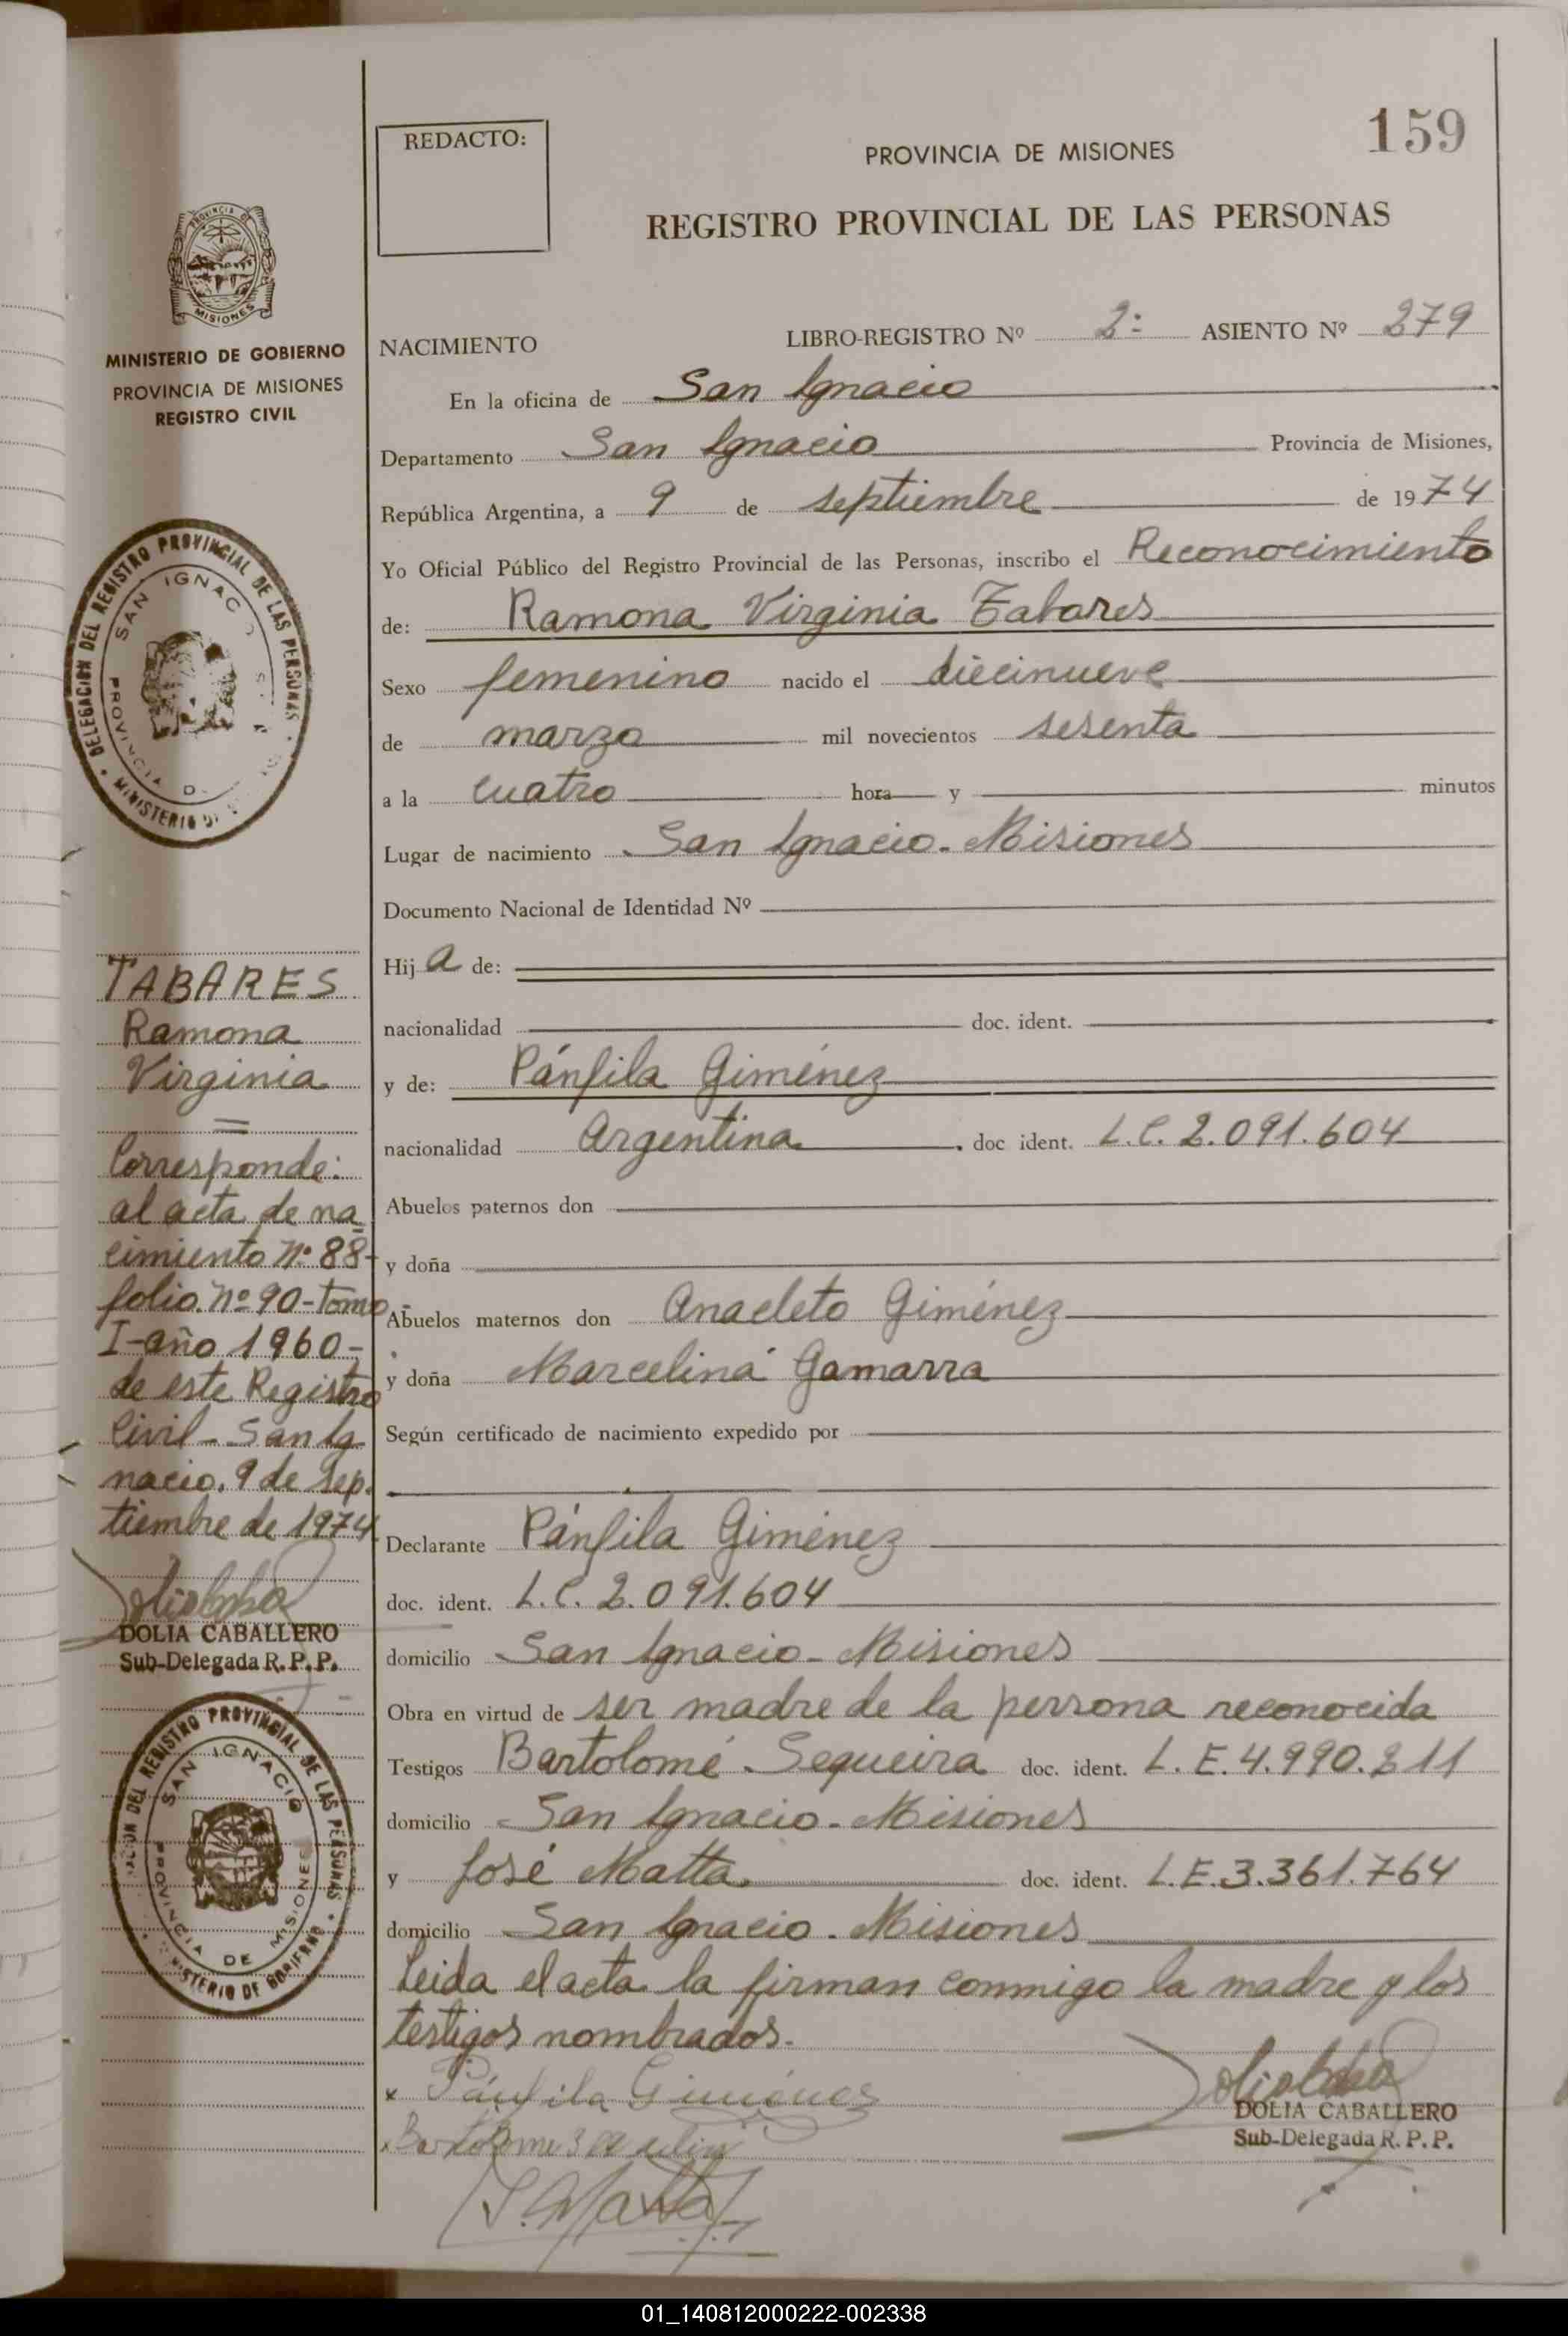 159
REDACTO:
PROVINCIA DE MISIONES
REGISTRO PROVINCIAL DE LAS PERSONAS
PROVINCIA DE
MISIONES
MINISTERIO DE GOBIERNO
PROVINCIA DE MISIONES
REGISTRO CIVIL
NACIMIENTO LIBRO-REGISTRO Nº 2º ASIENTO Nº 279
En la oficina de San Ignacio
Departamento San Ignacio Provincia de Misiones,
República Argentina, a 9 de septiembre de 1974
Yo Oficial Público del Registro Provincial de las Personas, inscribo el Reconocimiento
de: Ramona Virginia Tabares
Sexo femenino nacido el diecinueve
de marzo mil novecientos sesenta
a la cuatro hora y minutos
Lugar de nacimiento San Ignacio - Misiones
Documento Nacional de Identidad Nº
Hija de:
nacionalidad doc. ident.
y de: Pánfila Giménez
nacionalidad Argentina doc ident. L.C. 2.091.604
Abuelos paternos don
y doña
Abuelos maternos don Anacleto Giménez
y doña Marcelina Gamarra
Según certificado de nacimiento expedido por
Declarante Pánfila Giménez
doc. ident. L.C. 2.091.604
domicilio San Ignacio - Misiones
Obra en virtud de ser madre de la persona reconocida
Testigos Bartolomé Sequeira doc. ident. L.E. 4.990.811
domicilio San Ignacio - Misiones
y José Matta doc. ident. L.E. 3.361.764
domicilio San Ignacio - Misiones
Leida el acta la firman conmigo la madre y los
testigos nombrados.
x Pánfila Giménez
DOLIA CABALLERO
Sub-Delegada R. P. P.
DELEGACION DEL REGISTRO PROVINCIAL DE LAS PERSONAS
SAN IGNACIO
TABARES
Ramona
Virginia
Corresponde:
al acta de na
cimiento Nº 88-
folio Nº 90 - Tomo
I - año 1960 -
de este Registro
Civil - San Ig
nacio, 9 de Sep
tiembre de 1974
DOLIA CABALLERO
Sub-Delegada R. P. P.
DEL REGISTRO PROVINCIAL DE LAS PERSONAS
SAN IGNACIO
PROVINCIA DE MISIONES
MINISTERIO DE GOBIERNO
01_140812000222-002338